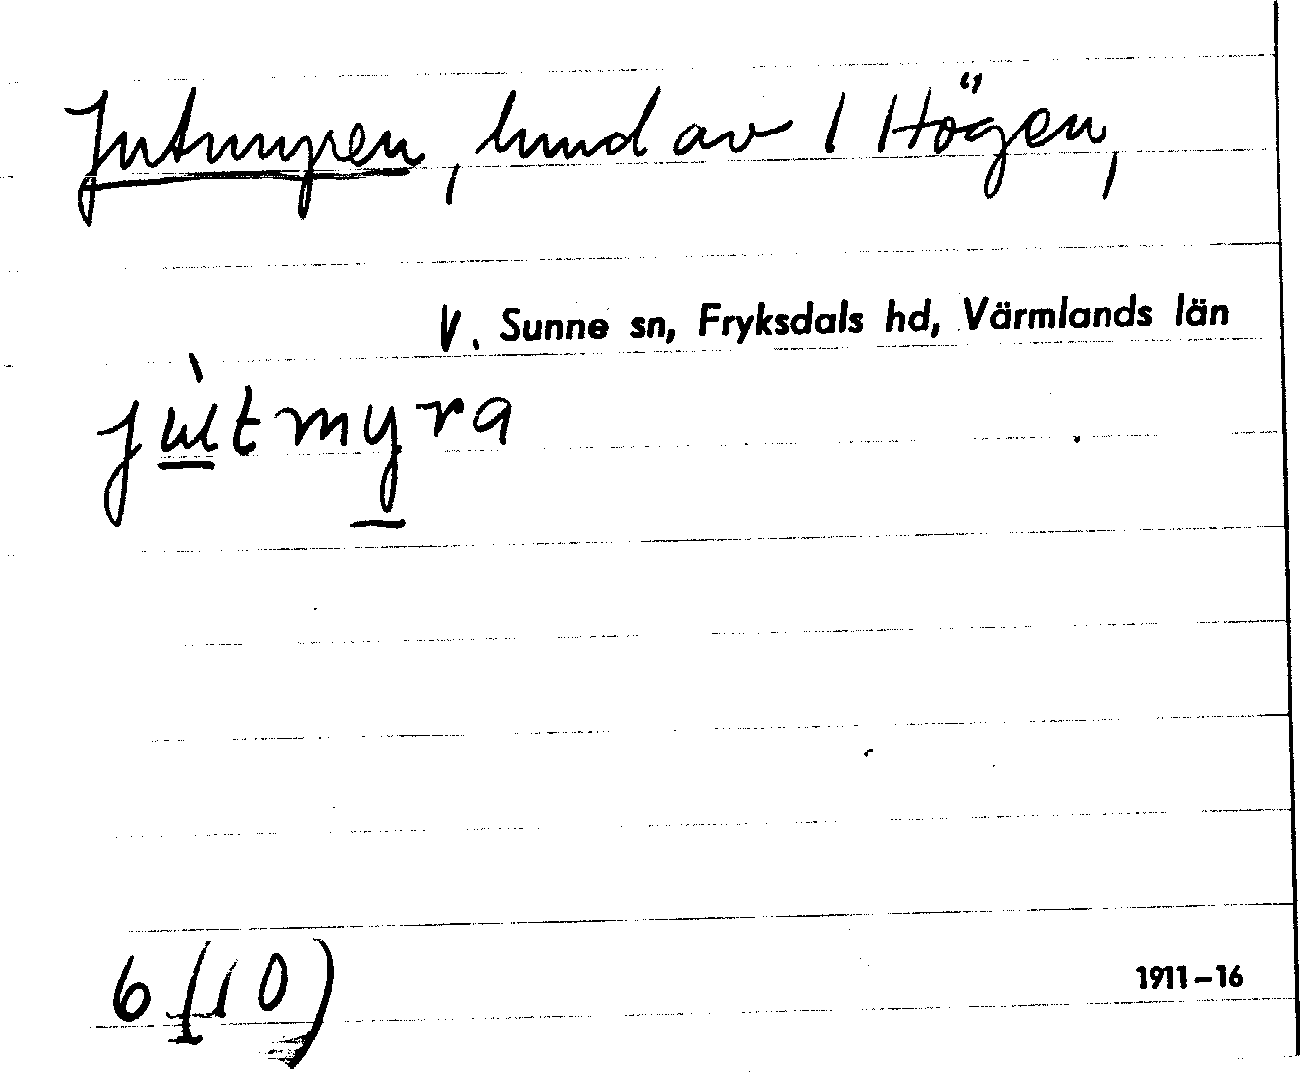 Jutmyren, lund av 1 Högen,
V. Sunne sn, Fryksdals hd, Värmlands län
jùtmyra
6 (10)
1911–16